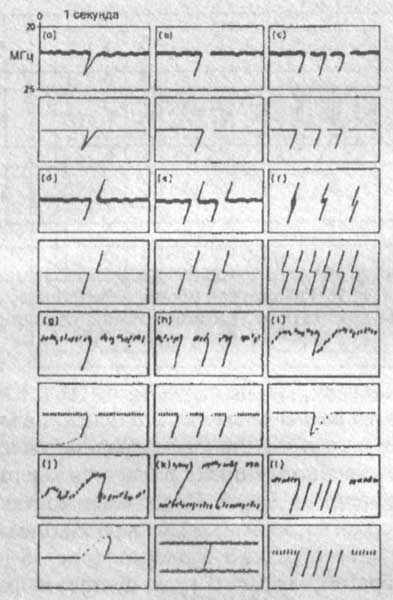 0 1 секунда
20
МГц
25
(a) (b) (c)
(d) (e) (f)
(g) (h) (i)
(j) (k) (l)